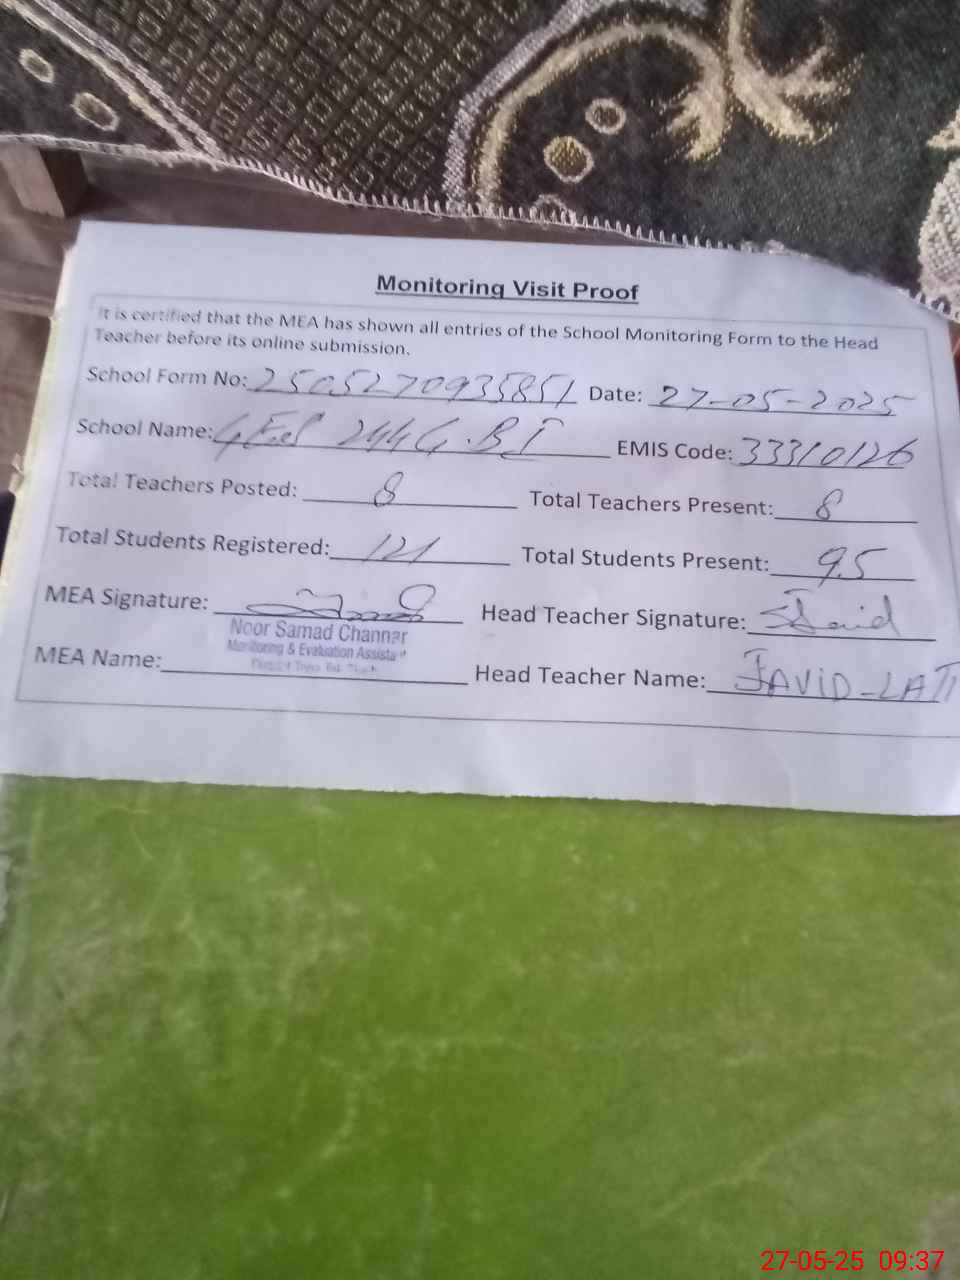 Monitoring Visit Proof
It is certified that the MEA has shown all entries of the School Monitoring Form to the Head
Teacher before its online submission.
School Form No: 2505270935851 Date: 27-05-2025
School Name: 244 G.B EMIS Code: 33310126
Total Teachers Posted: 8 Total Teachers Present: 8
Total Students Registered: 121 Total Students Present: 95
MEA Signature: Head Teacher Signature: Javid
Noor Samad Channar
Monitoring & Evaluation Assista
District
MEA Name: Head Teacher Name: JAVID-LATI
27-05-25 09:37